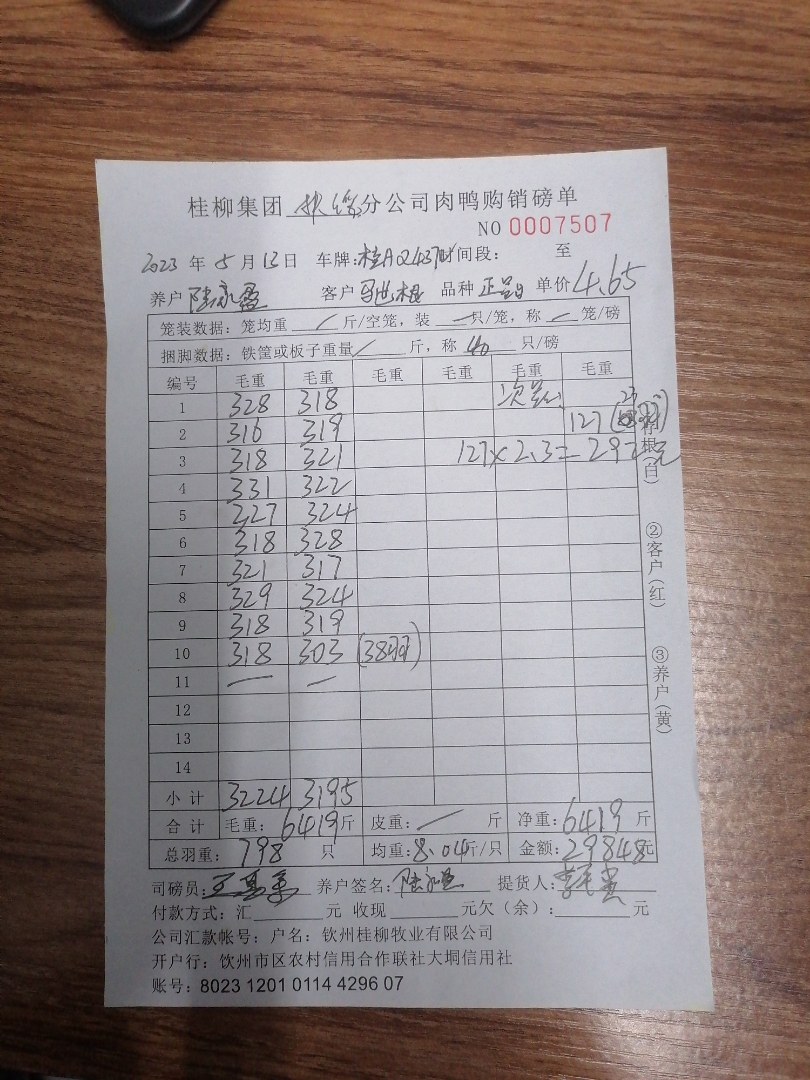 桂柳集团 分公司肉鸭购销磅单
NO 0007507
2023 年 5 月 13 日 车牌:桂A Q2437 时间段: 至
养户 陆永盈 客户 品种 正品 单价 4.65
笼装数据:笼均重 / 斤/空笼,装 — 只/笼,称 — 笼/磅
捆脚数据:铁筐或板子重量 / 斤,称 40 只/磅
编号 毛重 毛重 毛重 毛重 毛重 毛重
1 328 318 次品:
2 316 319 127 (23羽)
3 318 321 127×2.3=292元
4 331 322
5 327 324
6 318 328
7 321 317
8 329 324
9 318 319
10 318 303 (38羽)
11 — —
12
13
14
小计 3224 3195
合计 毛重: 6419 斤 皮重: / 斤 净重: 6419 斤
总羽重: 798 只 均重: 8.04 斤/只 金额: 29848 元
司磅员: 养户签名: 陆永盈 提货人:
付款方式:汇 元 收现 元欠(余): 元
公司汇款帐号:户名:钦州桂柳牧业有限公司
开户行:钦州市区农村信用合作联社大垌信用社
账号:8023 1201 0114 4296 07
①存根(白)
②客户(红)
③养户(黄)